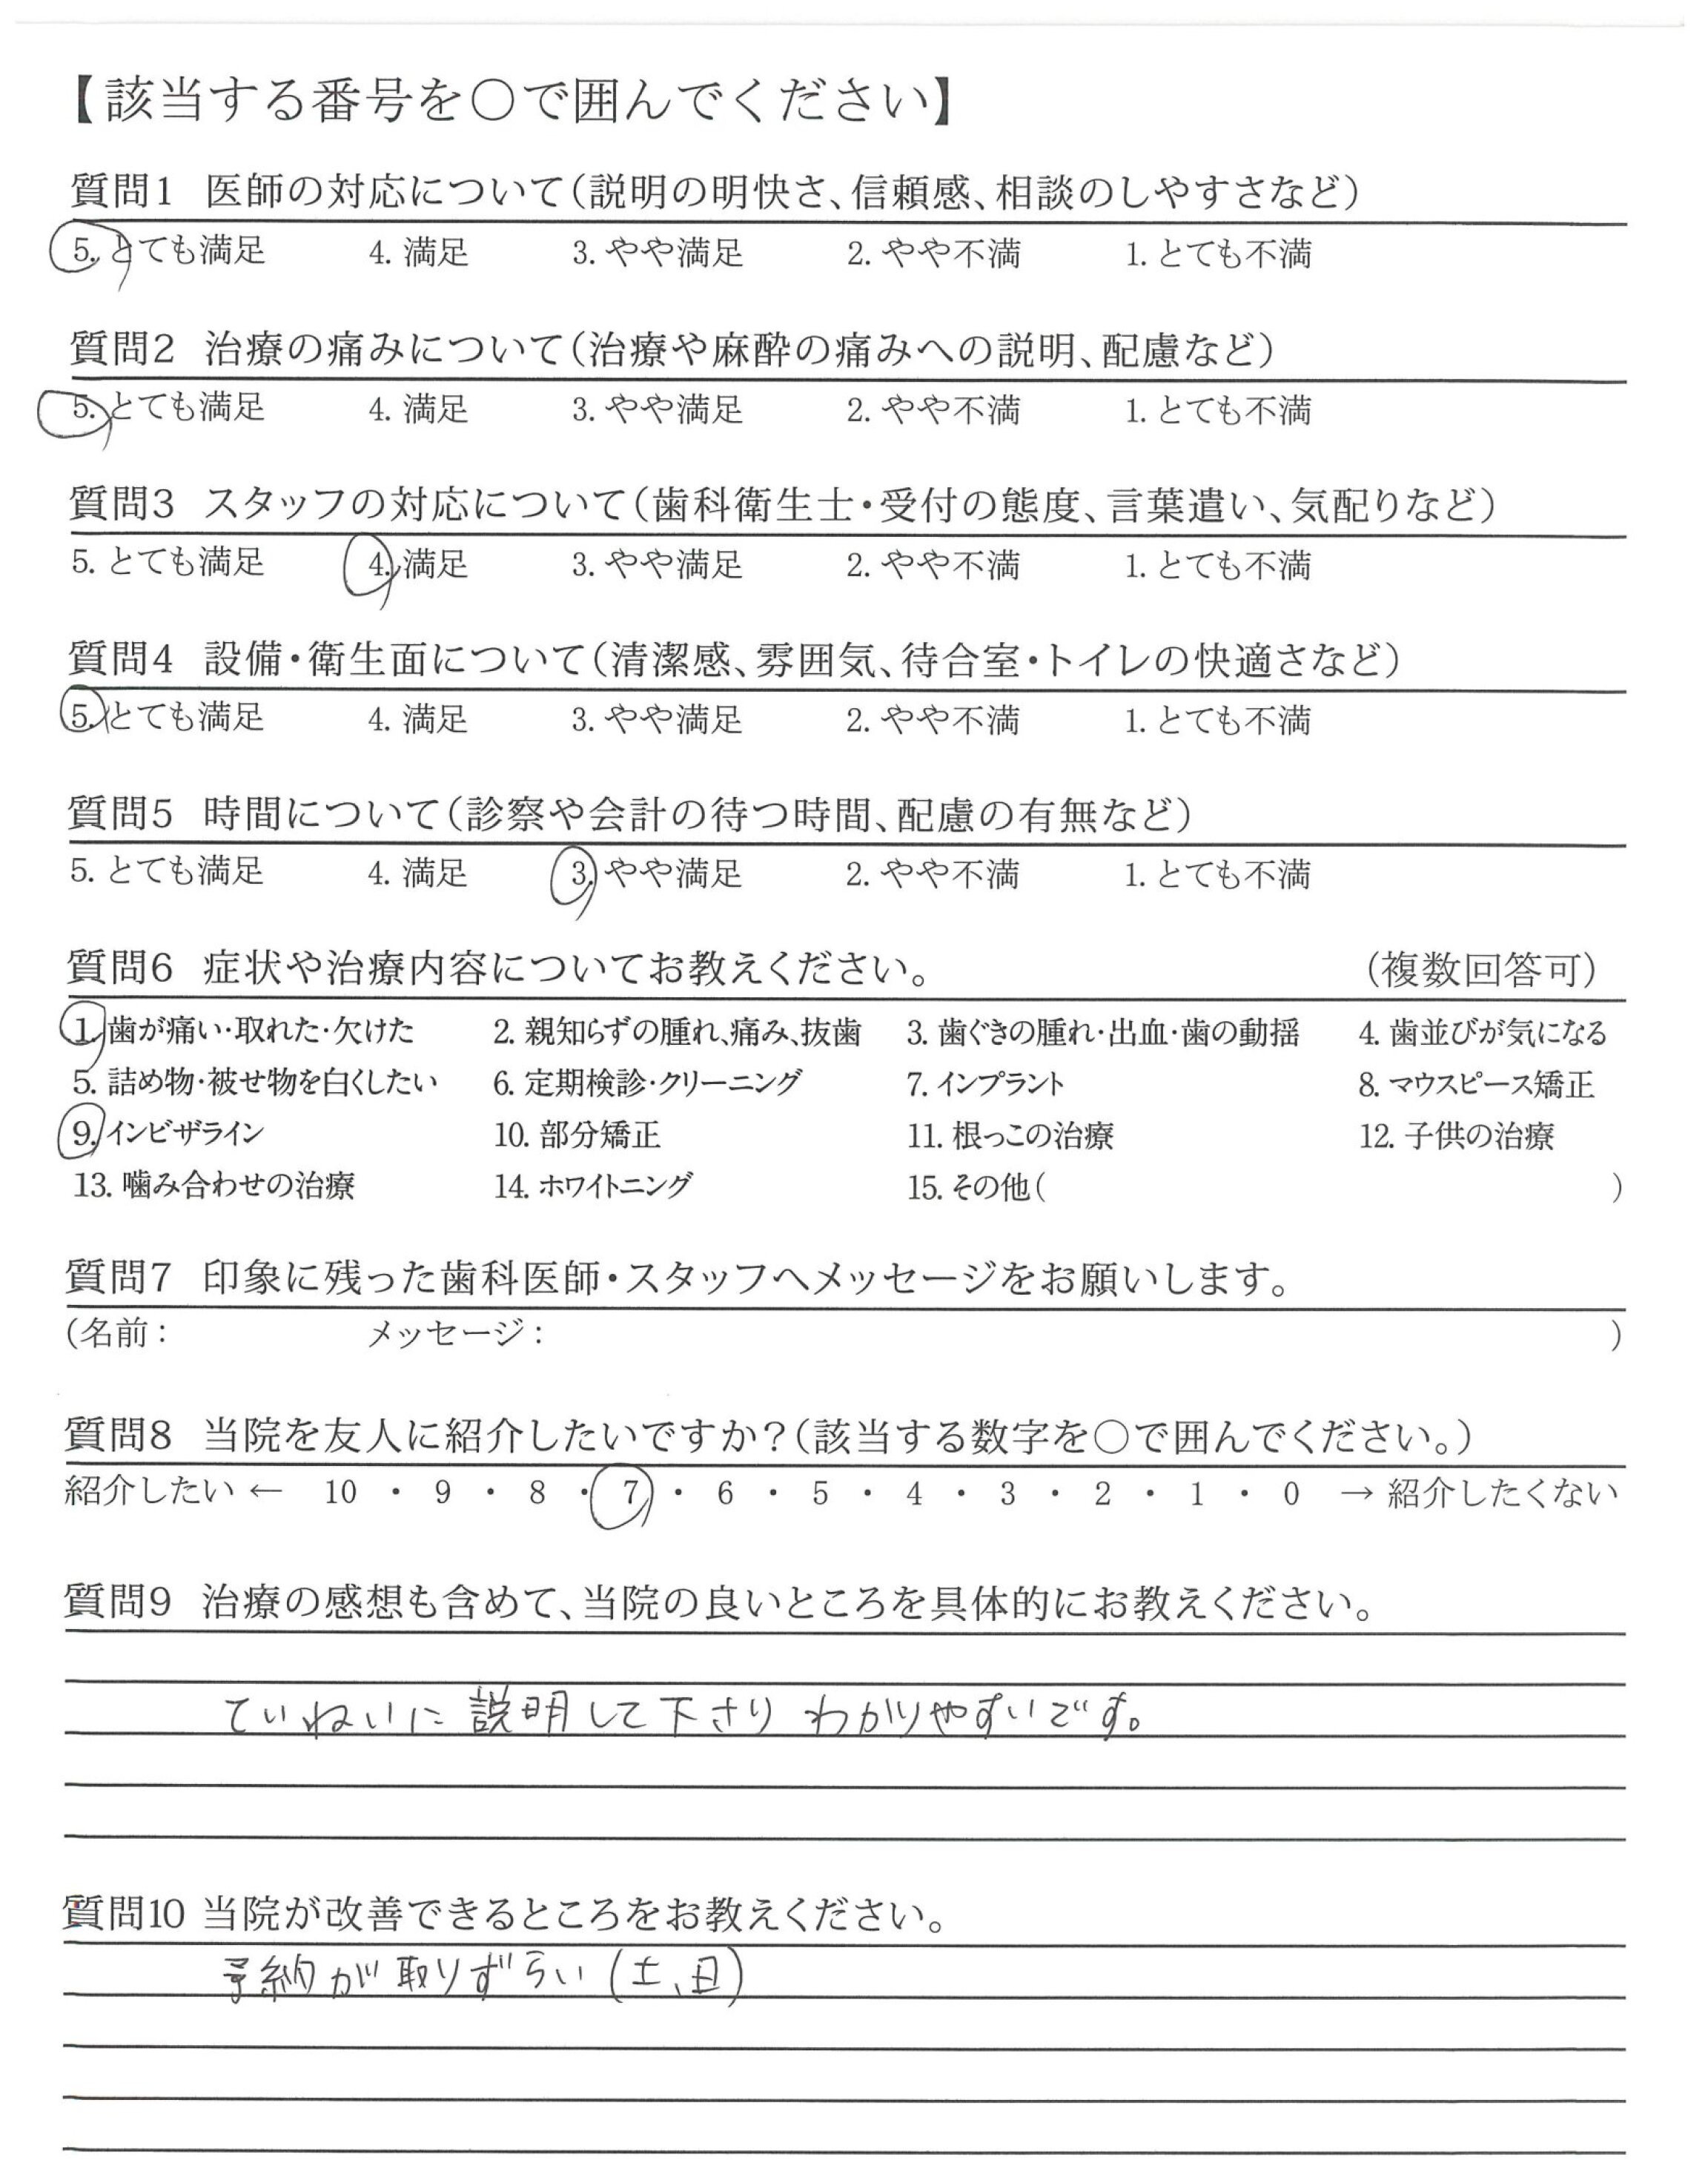 【該当する番号を〇で囲んでください】
質問1 医師の対応について（説明の明快さ、信頼感、相談のしやすさなど）
5. とても満足 4. 満足 3. やや満足 2. やや不満 1. とても不満
質問2 治療の痛みについて（治療や麻酔の痛みへの説明、配慮など）
5. とても満足 4. 満足 3. やや満足 2. やや不満 1. とても不満
質問3 スタッフの対応について（歯科衛生士・受付の態度、言葉遣い、気配りなど）
5. とても満足 4. 満足 3. やや満足 2. やや不満 1. とても不満
質問4 設備・衛生面について（清潔感、雰囲気、待合室・トイレの快適さなど）
5. とても満足 4. 満足 3. やや満足 2. やや不満 1. とても不満
質問5 時間について（診察や会計の待つ時間、配慮の有無など）
5. とても満足 4. 満足 3. やや満足 2. やや不満 1. とても不満
質問6 症状や治療内容についてお教えください。 （複数回答可）
1. 歯が痛い・取れた・欠けた 2. 親知らずの腫れ、痛み、抜歯 3. 歯ぐきの腫れ・出血・歯の動揺 4. 歯並びが気になる
5. 詰め物・被せ物を白くしたい 6. 定期検診・クリーニング 7. インプラント 8. マウスピース矯正
9. インビザライン 10. 部分矯正 11. 根っこの治療 12. 子供の治療
13. 噛み合わせの治療 14. ホワイトニング 15. その他（ ）
質問7 印象に残った歯科医師・スタッフへメッセージをお願いします。
（名前： メッセージ： ）
質問8 当院を友人に紹介したいですか？（該当する数字を〇で囲んでください。）
紹介したい ← 10 ・ 9 ・ 8 ・ 7 ・ 6 ・ 5 ・ 4 ・ 3 ・ 2 ・ 1 ・ 0 → 紹介したくない
質問9 治療の感想も含めて、当院の良いところを具体的にお教えください。
ていねいに説明して下さり わかりやすいです。
質問10 当院が改善できるところをお教えください。
予約が取りずらい（土、日）